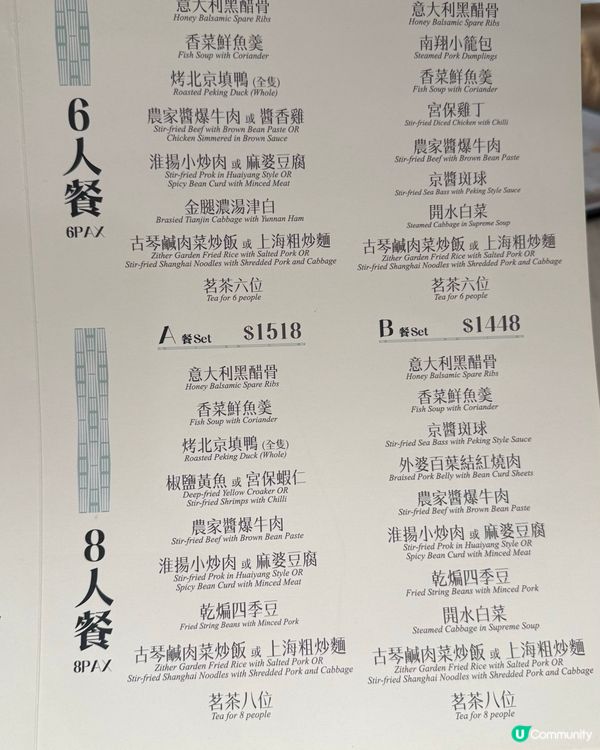 6人餐
6PAX
意大利黑醋骨
Honey Balsamic Spare Ribs
香菜鮮魚羹
Fish Soup with Coriander
烤北京填鴨 (全隻)
Roasted Peking Duck (Whole)
農家醬爆牛肉 或 醬香雞
Stir-fried Beef with Brown Bean Paste OR
Chicken Simmered in Brown Sauce
淮揚小炒肉 或 麻婆豆腐
Stir-fried Prok in Huaiyang Style OR
Spicy Bean Curd with Minced Meat
金腿濃湯津白
Brasied Tianjin Cabbage with Yunnan Ham
古琴鹹肉菜炒飯 或 上海粗炒麵
Zither Garden Fried Rice with Salted Pork OR
Stir-fried Shanghai Noodles with Shredded Pork and Cabbage
茗茶六位
Tea for 6 people
意大利黑醋骨
Honey Balsamic Spare Ribs
南翔小籠包
Steamed Pork Dumplings
香菜鮮魚羹
Fish Soup with Coriander
宮保雞丁
Stir-fried Diced Chicken with Chilli
農家醬爆牛肉
Stir-fried Beef with Brown Bean Paste
京醬斑球
Stir-fried Sea Bass with Peking Style Sauce
開水白菜
Steamed Cabbage in Supreme Soup
古琴鹹肉菜炒飯 或 上海粗炒麵
Zither Garden Fried Rice with Salted Pork OR
Stir-fried Shanghai Noodles with Shredded Pork and Cabbage
茗茶六位
Tea for 6 people
8人餐
8PAX
A 餐Set $1518
意大利黑醋骨
Honey Balsamic Spare Ribs
香菜鮮魚羹
Fish Soup with Coriander
烤北京填鴨 (全隻)
Roasted Peking Duck (Whole)
椒鹽黃魚 或 宮保蝦仁
Deep-fried Yellow Croaker OR
Stir-fried Shrimps with Chilli
農家醬爆牛肉
Stir-fried Beef with Brown Bean Paste
淮揚小炒肉 或 麻婆豆腐
Stir-fried Prok in Huaiyang Style OR
Spicy Bean Curd with Minced Meat
乾煸四季豆
Fried String Beans with Minced Pork
古琴鹹肉菜炒飯 或 上海粗炒麵
Zither Garden Fried Rice with Salted Pork OR
Stir-fried Shanghai Noodles with Shredded Pork and Cabbage
茗茶八位
Tea for 8 people
B 餐Set $1448
意大利黑醋骨
Honey Balsamic Spare Ribs
香菜鮮魚羹
Fish Soup with Coriander
京醬斑球
Stir-fried Sea Bass with Peking Style Sauce
外婆百葉結紅燒肉
Braised Pork Belly with Bean Curd Sheets
農家醬爆牛肉
Stir-fried Beef with Brown Bean Paste
淮揚小炒肉 或 麻婆豆腐
Stir-fried Prok in Huaiyang Style OR
Spicy Bean Curd with Minced Meat
乾煸四季豆
Fried String Beans with Minced Pork
開水白菜
Steamed Cabbage in Supreme Soup
古琴鹹肉菜炒飯 或 上海粗炒麵
Zither Garden Fried Rice with Salted Pork OR
Stir-fried Shanghai Noodles with Shredded Pork and Cabbage
茗茶八位
Tea for 8 people
U Community